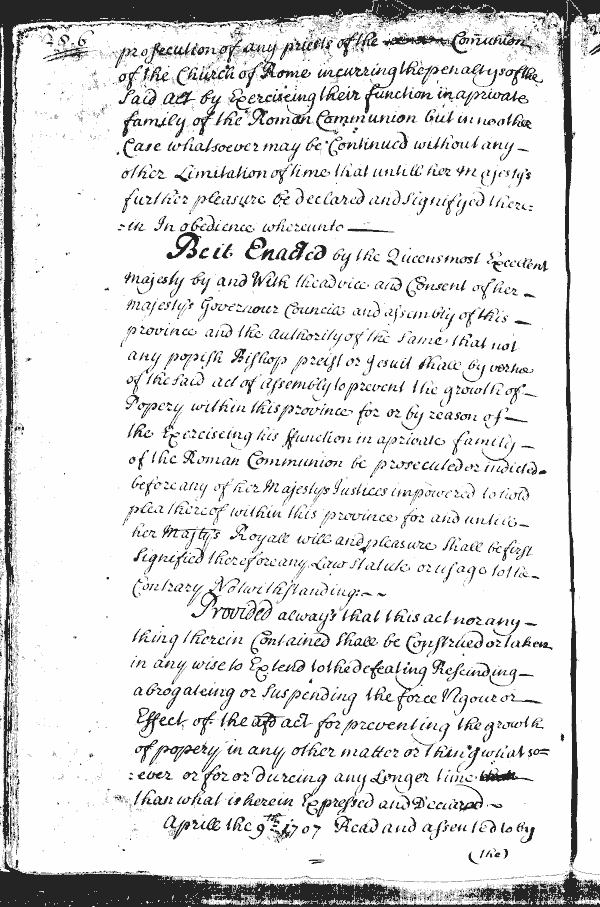 286
prossecution of any priests of the Comunion
of the Church of Rome incurring the penaltys of the
Said Act by Exerciseing their function in a private
family of the Roman Communion but in no other
Case whatsoever may be Continued without any
other Limitation of time that untill her Majestys
further pleasure be declared and Signifyed there:
:in In obedience whereunto
Be it Enacted by the Queens most Excellent
Majesty by and With the advice and Consent of her
Majestys Governour Councill and assembly of this
province and the authority of the Same that not
any popish Bishop preist or Jesuit Shall by vertue
of the Said act of assembly to prevent the growth of
Popery within this province for or by reason of
the Exerciseing his ffunction in a private family
of the Roman Communion be prosecuted or indicted
before any of her Majestys Justices impowered to hold
plea thereof within this province for and untill
her Majtys Royall will and pleasure Shall be first
Signified therefore any Law Statute or usage to the
Contrary Notwithstanding:
Provided always that this act nor any
thing therein Contained Shall be Construed or taken
in any wise to Extend to the defeating Rescinding
abrogateing or Suspending the force Vigour or
Effect of the afd act for preventing the growth
of popery in any other matter or thing what so=
:ever or for or dureing any Longer time
than what is herein Expressed and Declared
Aprill the 9th 1707 Read and assented to by
(the)